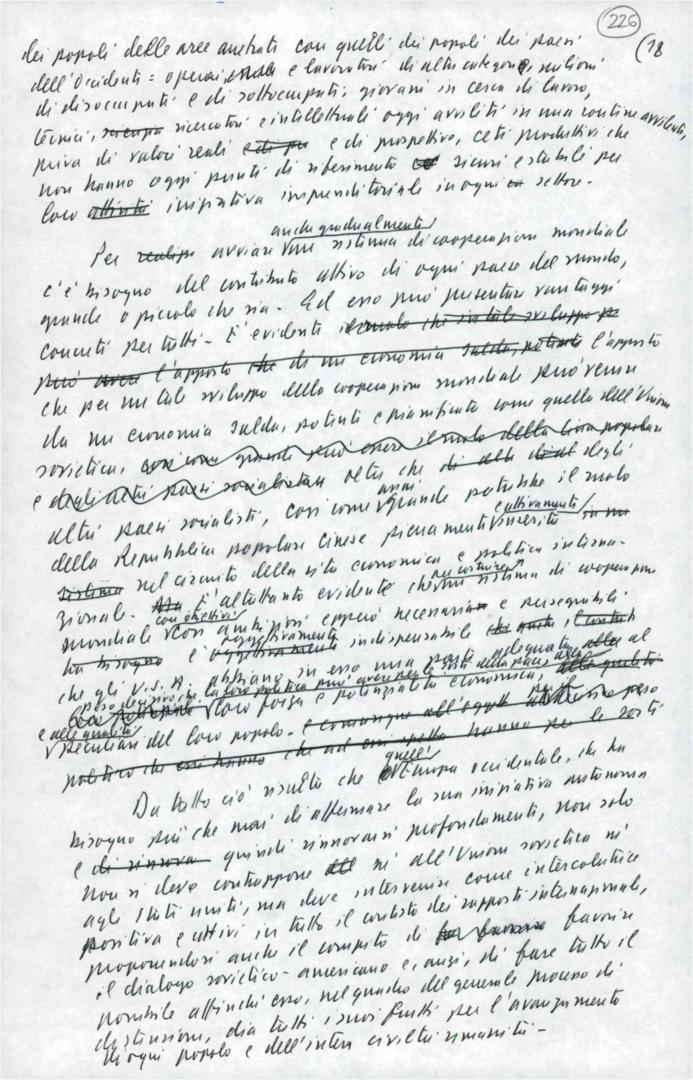 226
(18
dei popoli delle aree arretrate con quelli dei popoli dei paesi
dell'Occidente: operai, e lavoratori di altre categorie, milioni
di disoccupati e di sottoccupati, giovani in cerca di lavoro,
tecnici, ricercatori e intellettuali oggi avviliti in una routine avvilente,
priva di valori reali e di prospettive, ceti produttivi che
non hanno oggi punti di riferimento sicuri e stabili per
loro iniziativa imprenditoriale in ogni settore.
anche gradualmente
Per avviare un sistema di cooperazione mondiale
c'è bisogno del contributo attivo di ogni paese del mondo,
grande o piccolo che sia. Ed esso può presentare vantaggi
concreti per tutti. È evidente il ruolo che in tale sviluppo
può avere l'apporto che di un'economia salda, potente l'apporto
che per un tale sviluppo della cooperazione mondiale può venire
da un'economia salda, potente e pianificata come quella dell'Unione
sovietica, così come grande può essere il ruolo della Cina popolare
e degli altri paesi socialisti oltre che degli
assai
altri paesi socialisti, così come grande potrebbe il ruolo
e attivamente
della Repubblica popolare cinese pienamente inserita
sistema nel circuito della vita economica e politica interna-
per costruire
zionale. È altrettanto evidente che un sistema di cooperazione
con obiettivi
mondiale così ampi eppure necessari e perseguibili
oggettivamente
ha bisogno è indispensabile
che gli U.S.A. abbiano in esso una parte adeguata al
peso decisivo che la loro politica può avere
loro forza e potenzialità economica,
e alle qualità
peculiari del loro popolo.
politico che essi hanno che ad essi spetta hanno per le sorti
quell'
Da tutto ciò risulta che Europa occidentale, che ha
bisogno più che mai di affermare la sua iniziativa autonoma
e di rinnova quindi rinnovarsi profondamente, non solo
non si deve contrapporre né all'Unione sovietica né
agli Stati uniti, ma deve intervenire come interlocutrice
positiva e attiva in tutto il contesto dei rapporti internazionali,
proponendosi anche il compito di favorire
il dialogo sovietico-americano e, anzi, di fare tutto il
possibile affinché esso, nel quadro del generale processo di
distensione, dia tutti i suoi frutti per l'avanzamento
di ogni popolo e dell'intera civiltà umanità.